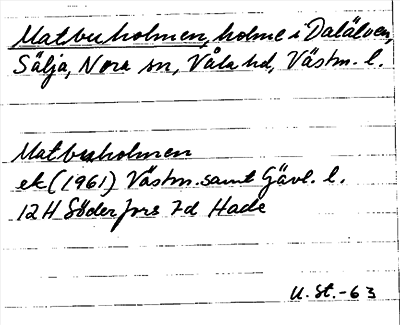 Matbuholmen, holme i Dalälven,
Sälja, Nora sn, Våla hd, Västm. l.
Matbuholmen
ek (1961) Västm. samt Gävl. l.
12H Söderfors 7d Hade
U. St. -63